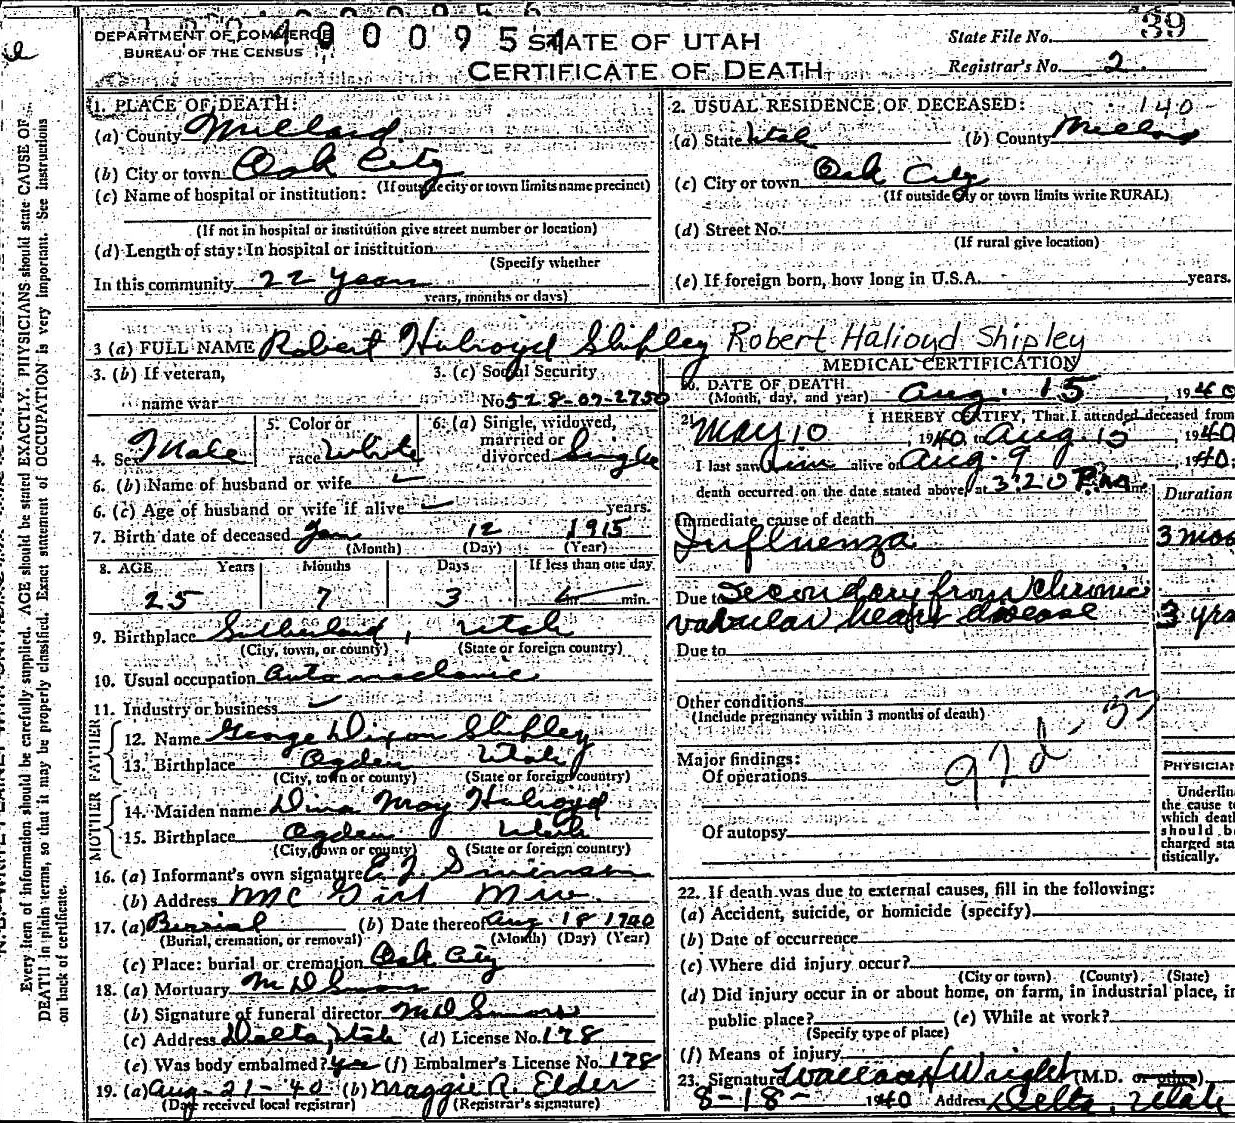 39
DEPARTMENT OF COMMERCE
BUREAU OF THE CENSUS
400095
STATE OF UTAH
CERTIFICATE OF DEATH
State File No.
Registrar's No. 2
1. PLACE OF DEATH:
(a) County Millard
(b) City or town Oak City
(If outside city or town limits name precinct)
(c) Name of hospital or institution:
(If not in hospital or institution give street number or location)
(d) Length of stay: In hospital or institution
(Specify whether
In this community 22 years
years, months or days)
2. USUAL RESIDENCE OF DECEASED: 140
(a) State Utah (b) County Millard
(c) City or town Oak City
(If outside city or town limits write RURAL)
(d) Street No.
(If rural give location)
(e) If foreign born, how long in U.S.A. years.
3 (a) FULL NAME Robert Holroyd Shipley Robert Halioyd Shipley
3. (b) If veteran,
name war
3. (c) Social Security
No 528-07-2750
4. Sex Male
5. Color or
race White
6. (a) Single, widowed,
married or
divorced Single
6. (b) Name of husband or wife
6. (c) Age of husband or wife if alive years.
7. Birth date of deceased Jan 12 1915
(Month) (Day) (Year)
8. AGE Years Months Days If less than one day
25 7 3 hr. min.
9. Birthplace Sutherland, Utah
(City, town, or county) (State or foreign country)
10. Usual occupation Auto mechanic
11. Industry or business
FATHER
12. Name George Dixon Shipley
13. Birthplace Ogden Utah
(City, town or county) (State or foreign country)
MOTHER
14. Maiden name Dina May Holroyd
15. Birthplace Ogden Utah
(City, town or county) (State or foreign country)
16. (a) Informant's own signature
(b) Address
17. (a) Burial (b) Date thereof Aug 18 1940
(Burial, cremation, or removal) (Month) (Day) (Year)
(c) Place: burial or cremation Oak City
18. (a) Mortuary
(b) Signature of funeral director
(c) Address Delta, Utah (d) License No. 178
(e) Was body embalmed? Yes (f) Embalmer's License No. 178
19. (a) Aug-21-40 (b) Maggie A. Elder
(Date received local registrar) (Registrar's signature)
MEDICAL CERTIFICATION
20. DATE OF DEATH
(Month, day, and year) Aug. 15, 1940
21. I HEREBY CERTIFY, That I attended deceased from
May 10, 1940 to Aug. 15, 1940
I last saw him alive on Aug. 9, 1940
death occurred on the date stated above, at 3:20 P.m.
Duration
Immediate cause of death
Influenza 3 mos
Due to Secondary from Chronic
valvular heart disease 3 yrs
Due to
Other conditions
(Include pregnancy within 3 months of death)
Major findings:
Of operations
Of autopsy
PHYSICIAN
Underline
the cause to
which death
should be
charged sta
tistically.
22. If death was due to external causes, fill in the following:
(a) Accident, suicide, or homicide (specify)
(b) Date of occurrence
(c) Where did injury occur?
(City or town) (County) (State)
(d) Did injury occur in or about home, on farm, in industrial place, in
public place? (e) While at work?
(Specify type of place)
(f) Means of injury
23. Signature Wallace H Wright (M.D. or other)
8-18- 1940 Address Delta, Utah
Every item of information should be carefully supplied. AGE should be stated EXACTLY. PHYSICIANS should state CAUSE OF
DEATH in plain terms, so that it may be properly classified. Exact statement of OCCUPATION is very important. See Instructions
on back of certificate.